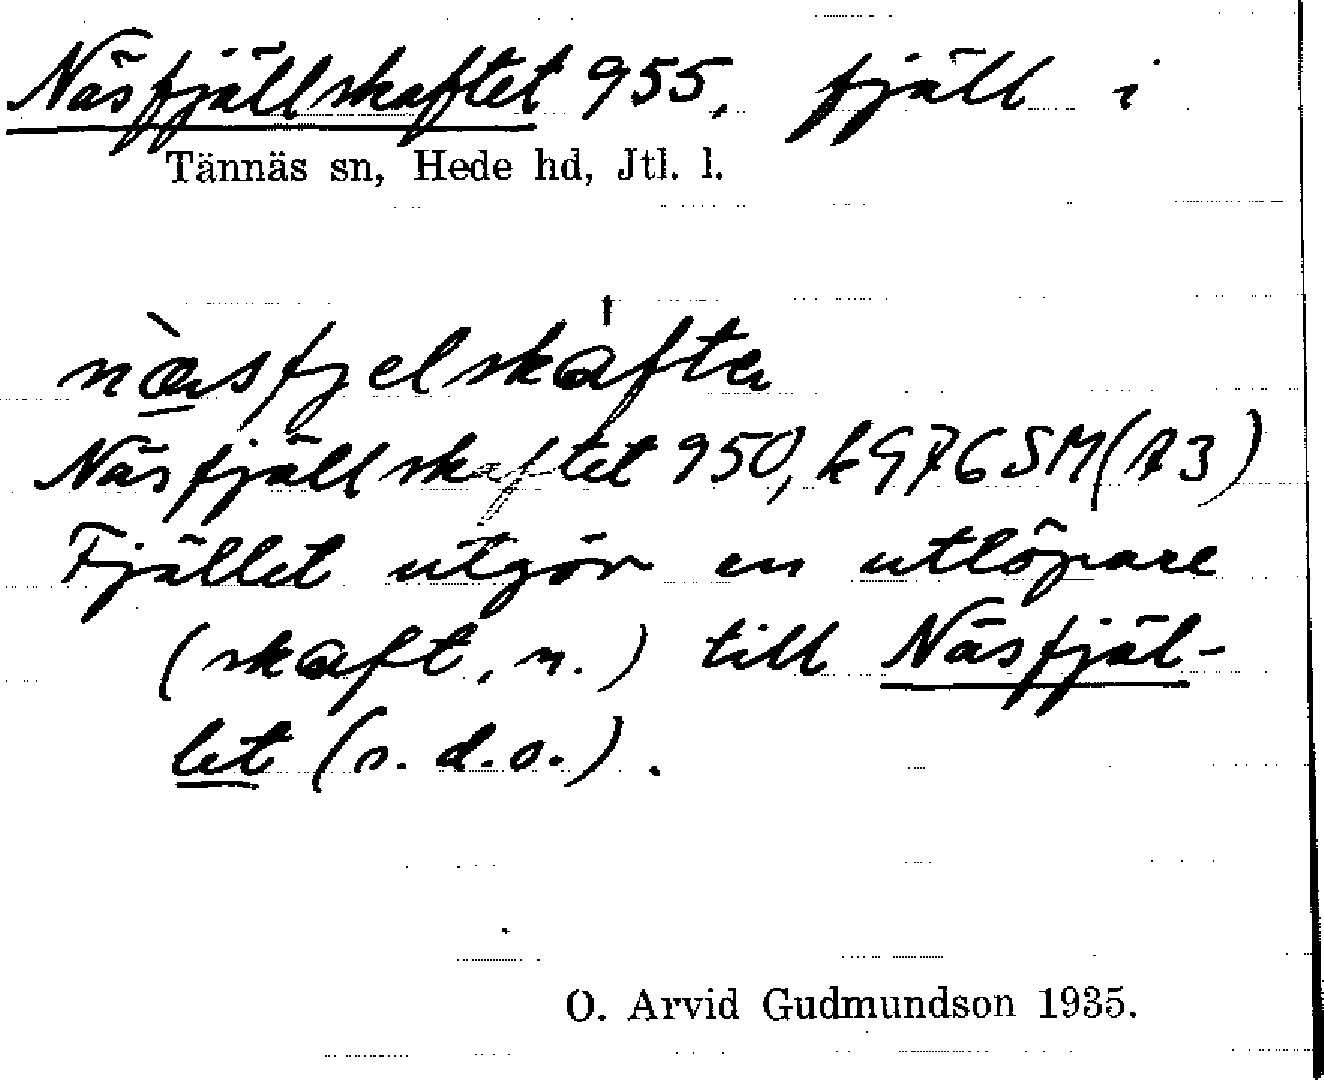 Näsfjällskaftet 955, fjäll i
Tännäs sn, Hede hd, Jtl. l.
næsfjelskafte
Näsfjällskaftet 950, k 97 6 SM (A3)
Fjället utgör en utlöpare
(skaft, n.) till Näsfjäl-
let (s. d. o.).
O. Arvid Gudmundson 1935.